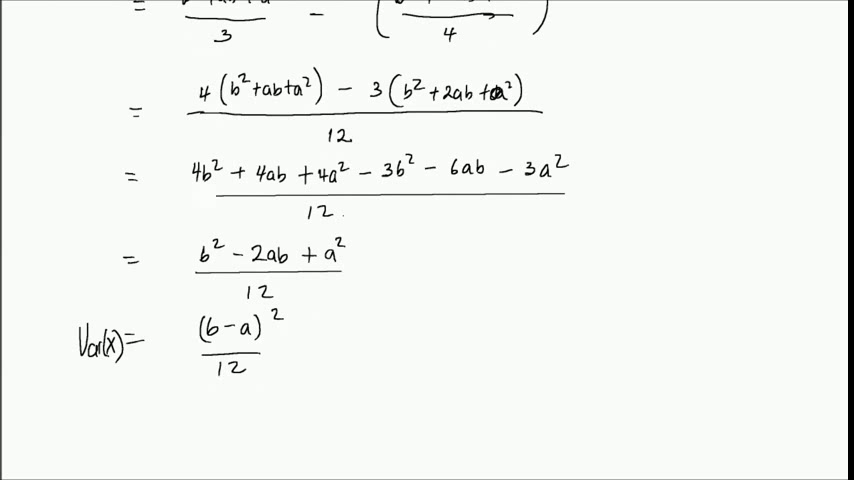 = 3 - ( 4 )
= 4(b² + ab + a²) - 3(b² + 2ab + a²) / 12
= 4b² + 4ab + 4a² - 3b² - 6ab - 3a² / 12
= b² - 2ab + a² / 12
Var(x) = (b - a)² / 12